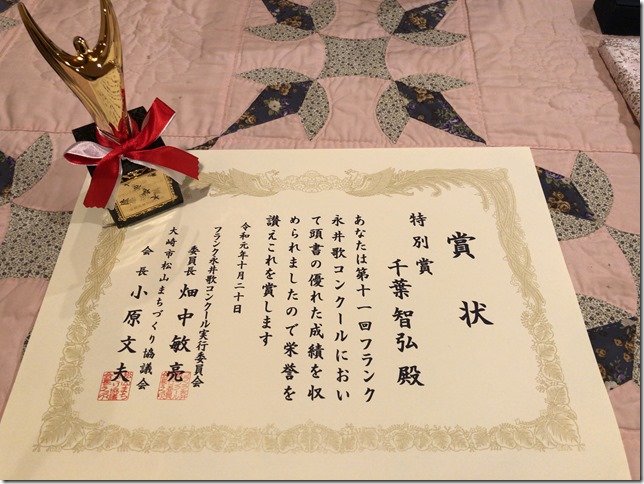 賞状
特別賞
千葉智弘殿
あなたは第十一回フランク
永井歌コンクールにおい
て頭書の優れた成績を収
められましたので栄誉を
讃えこれを賞します
令和元年十月二十日
フランク永井歌コンクール実行委員会
委員長 畑中敏亮
大崎市松山まちづくり協議会
会長 小原文夫